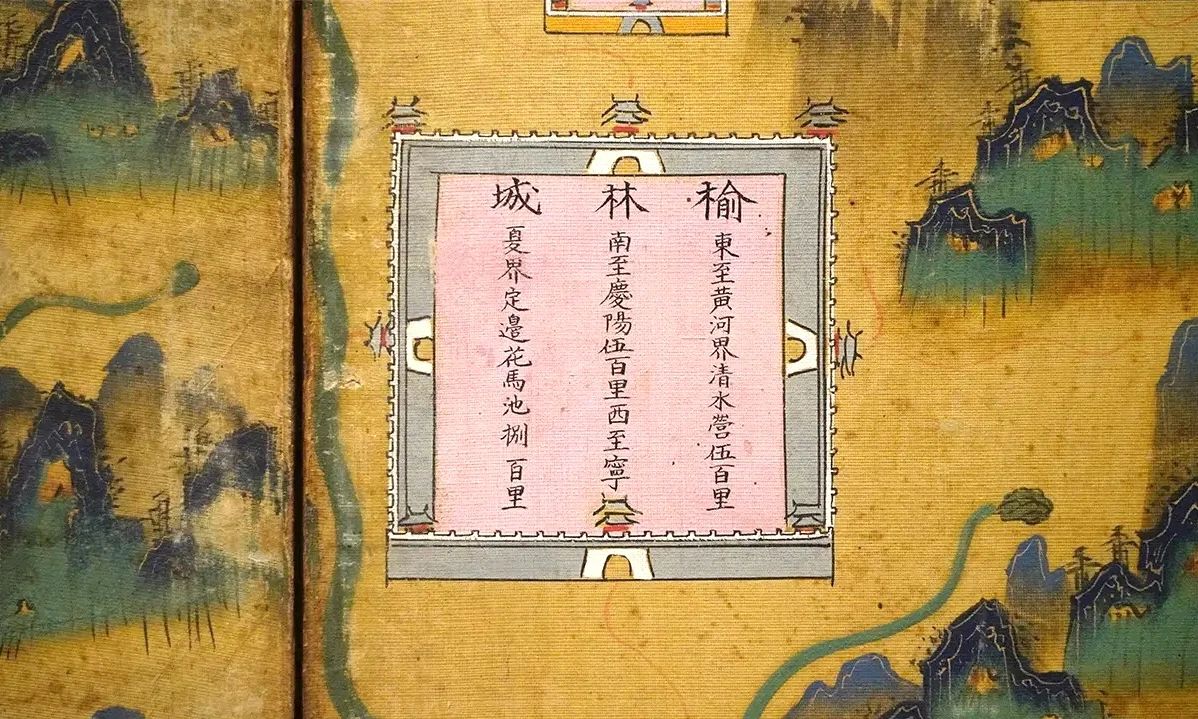 榆林城
東至黃河界清水營伍百里
南至慶陽伍百里西至寧
夏界定邊花馬池捌百里